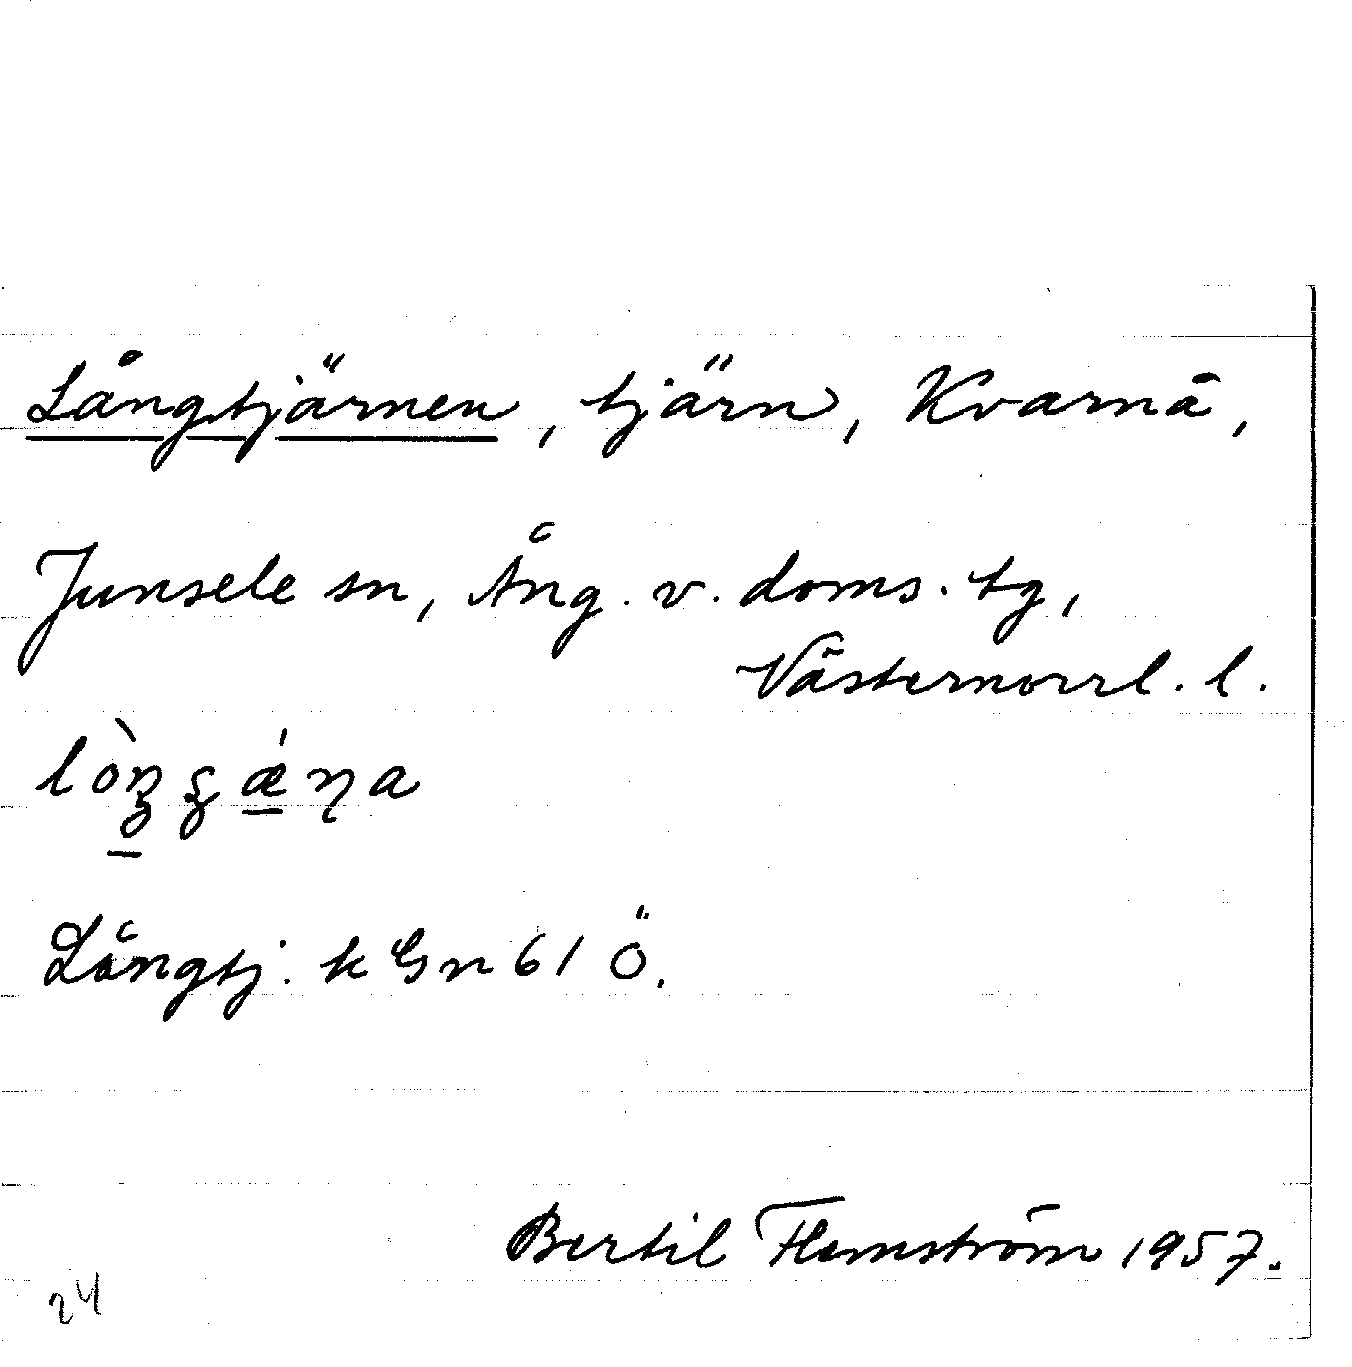 Långtjärnen, tjärn, Kvarnå,
Junsele sn, Ång. v. doms. tg,
Västernorrl. l.
Långtj. k Gn 61 Ö.
Bertil Flemström 1957.
24